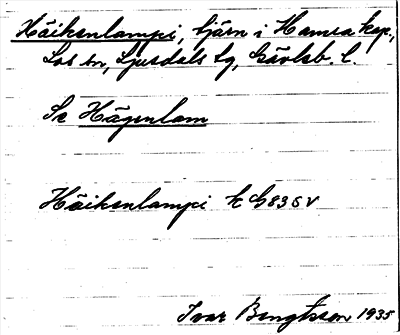 Häikenlampi, tjärn i Hamra kap.,
Los sn, Ljusdals tg, Gävleb. l.
Se Hägenlam
Häikenlampi k G 83 SV
Ivar Bengtsson 1935